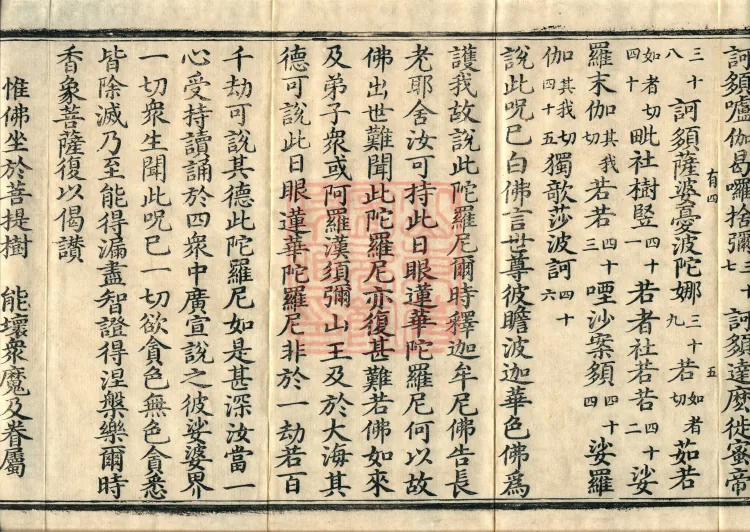 訶頞嚧伽曷囉捨彌三十七訶頞達麽徙宻帝
三十八訶頞薩婆憂波陀娜三十九若如者切茹若
如者切四十毗社樹竪四十一若者社若若四十二娑
羅末伽其我切若若四十三哩沙案頞四十四娑羅
伽其我切四十五獨歌莎波訶四十六
說此呪巳白佛言世尊彼瞻波迦華色佛爲
護我故說此陀羅尼爾時釋迦牟尼佛告長
老耶舍汝可持此日眼蓮華陀羅尼何以故
佛出世難聞此陀羅尼亦復甚難若佛如來
及弟子衆或阿羅漢須彌山王及於大海其
德可說此日眼蓮華陀羅尼非於一劫若百
千劫可說其德此陀羅尼如是甚深汝當一
心受持讀誦於四衆中廣宣說之彼娑婆界
一切衆生聞此呪巳一切欲貪色無色貪悉
皆除滅乃至能得漏盡智證得涅槃樂爾時
香象菩薩復以偈讃
惟佛坐於菩提樹　能壞衆魔及眷屬